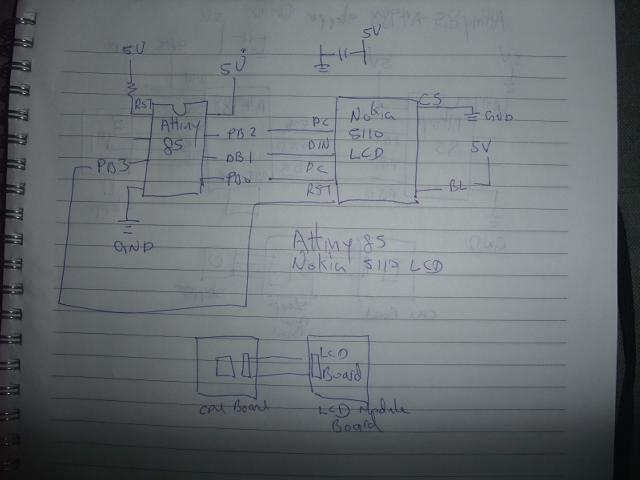 5V
5V
5V
RST
Attiny
85
PB3
PB2
PB1
PB0
GND
DC
DIN
DC
RST
Nokia
5110
LCD
CS
GND
5V
BL
Attiny 85
Nokia 5110 LCD
LCD
Board
CPU Board
LCD Module
Board